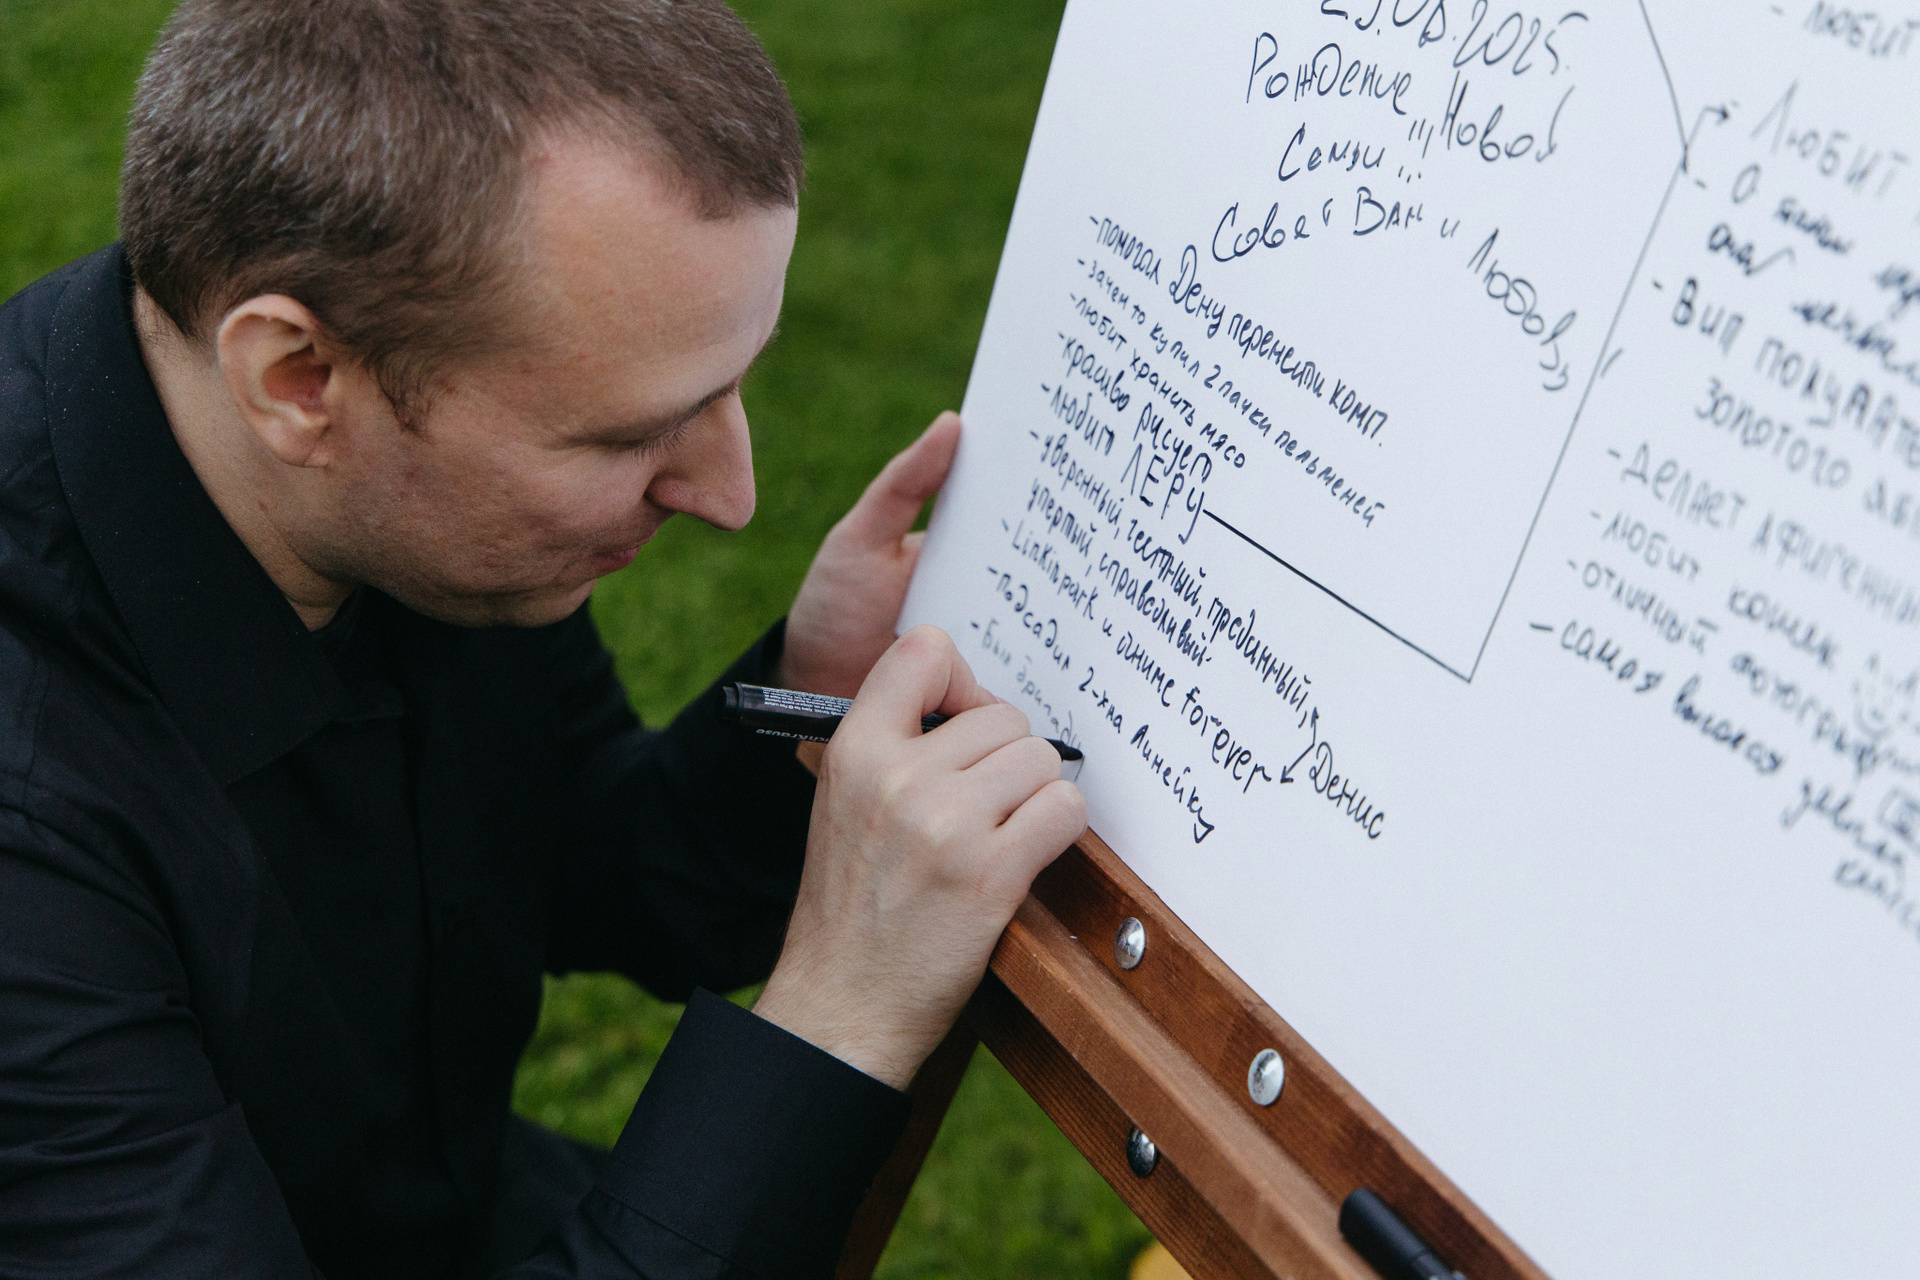 Рождение Новой
Семьи !!!
Совет Вам и Любовь
- помогал Дену перенести комп.
- зачем то купил 2 пачки пельменей
- любит хранить мясо
- красиво рисует
- любит ЛЕРУ
- уверенный, честный, преданный,
упертый, справедливый.
- Linkin park и аниме forever
Денис
- подсадил 2-х на Линейку
- был
- ЛЮБИТ
ЛЮБИТ
- О
- ВИП ПОКУПАТЕ
ЗОЛОТОГО
- ДЕЛАЕТ АФИГЕННЫ
- ЛЮБИТ КОШЕК
- ОТЛИЧНЫЙ ФОТОГРАФ
- самая высокая